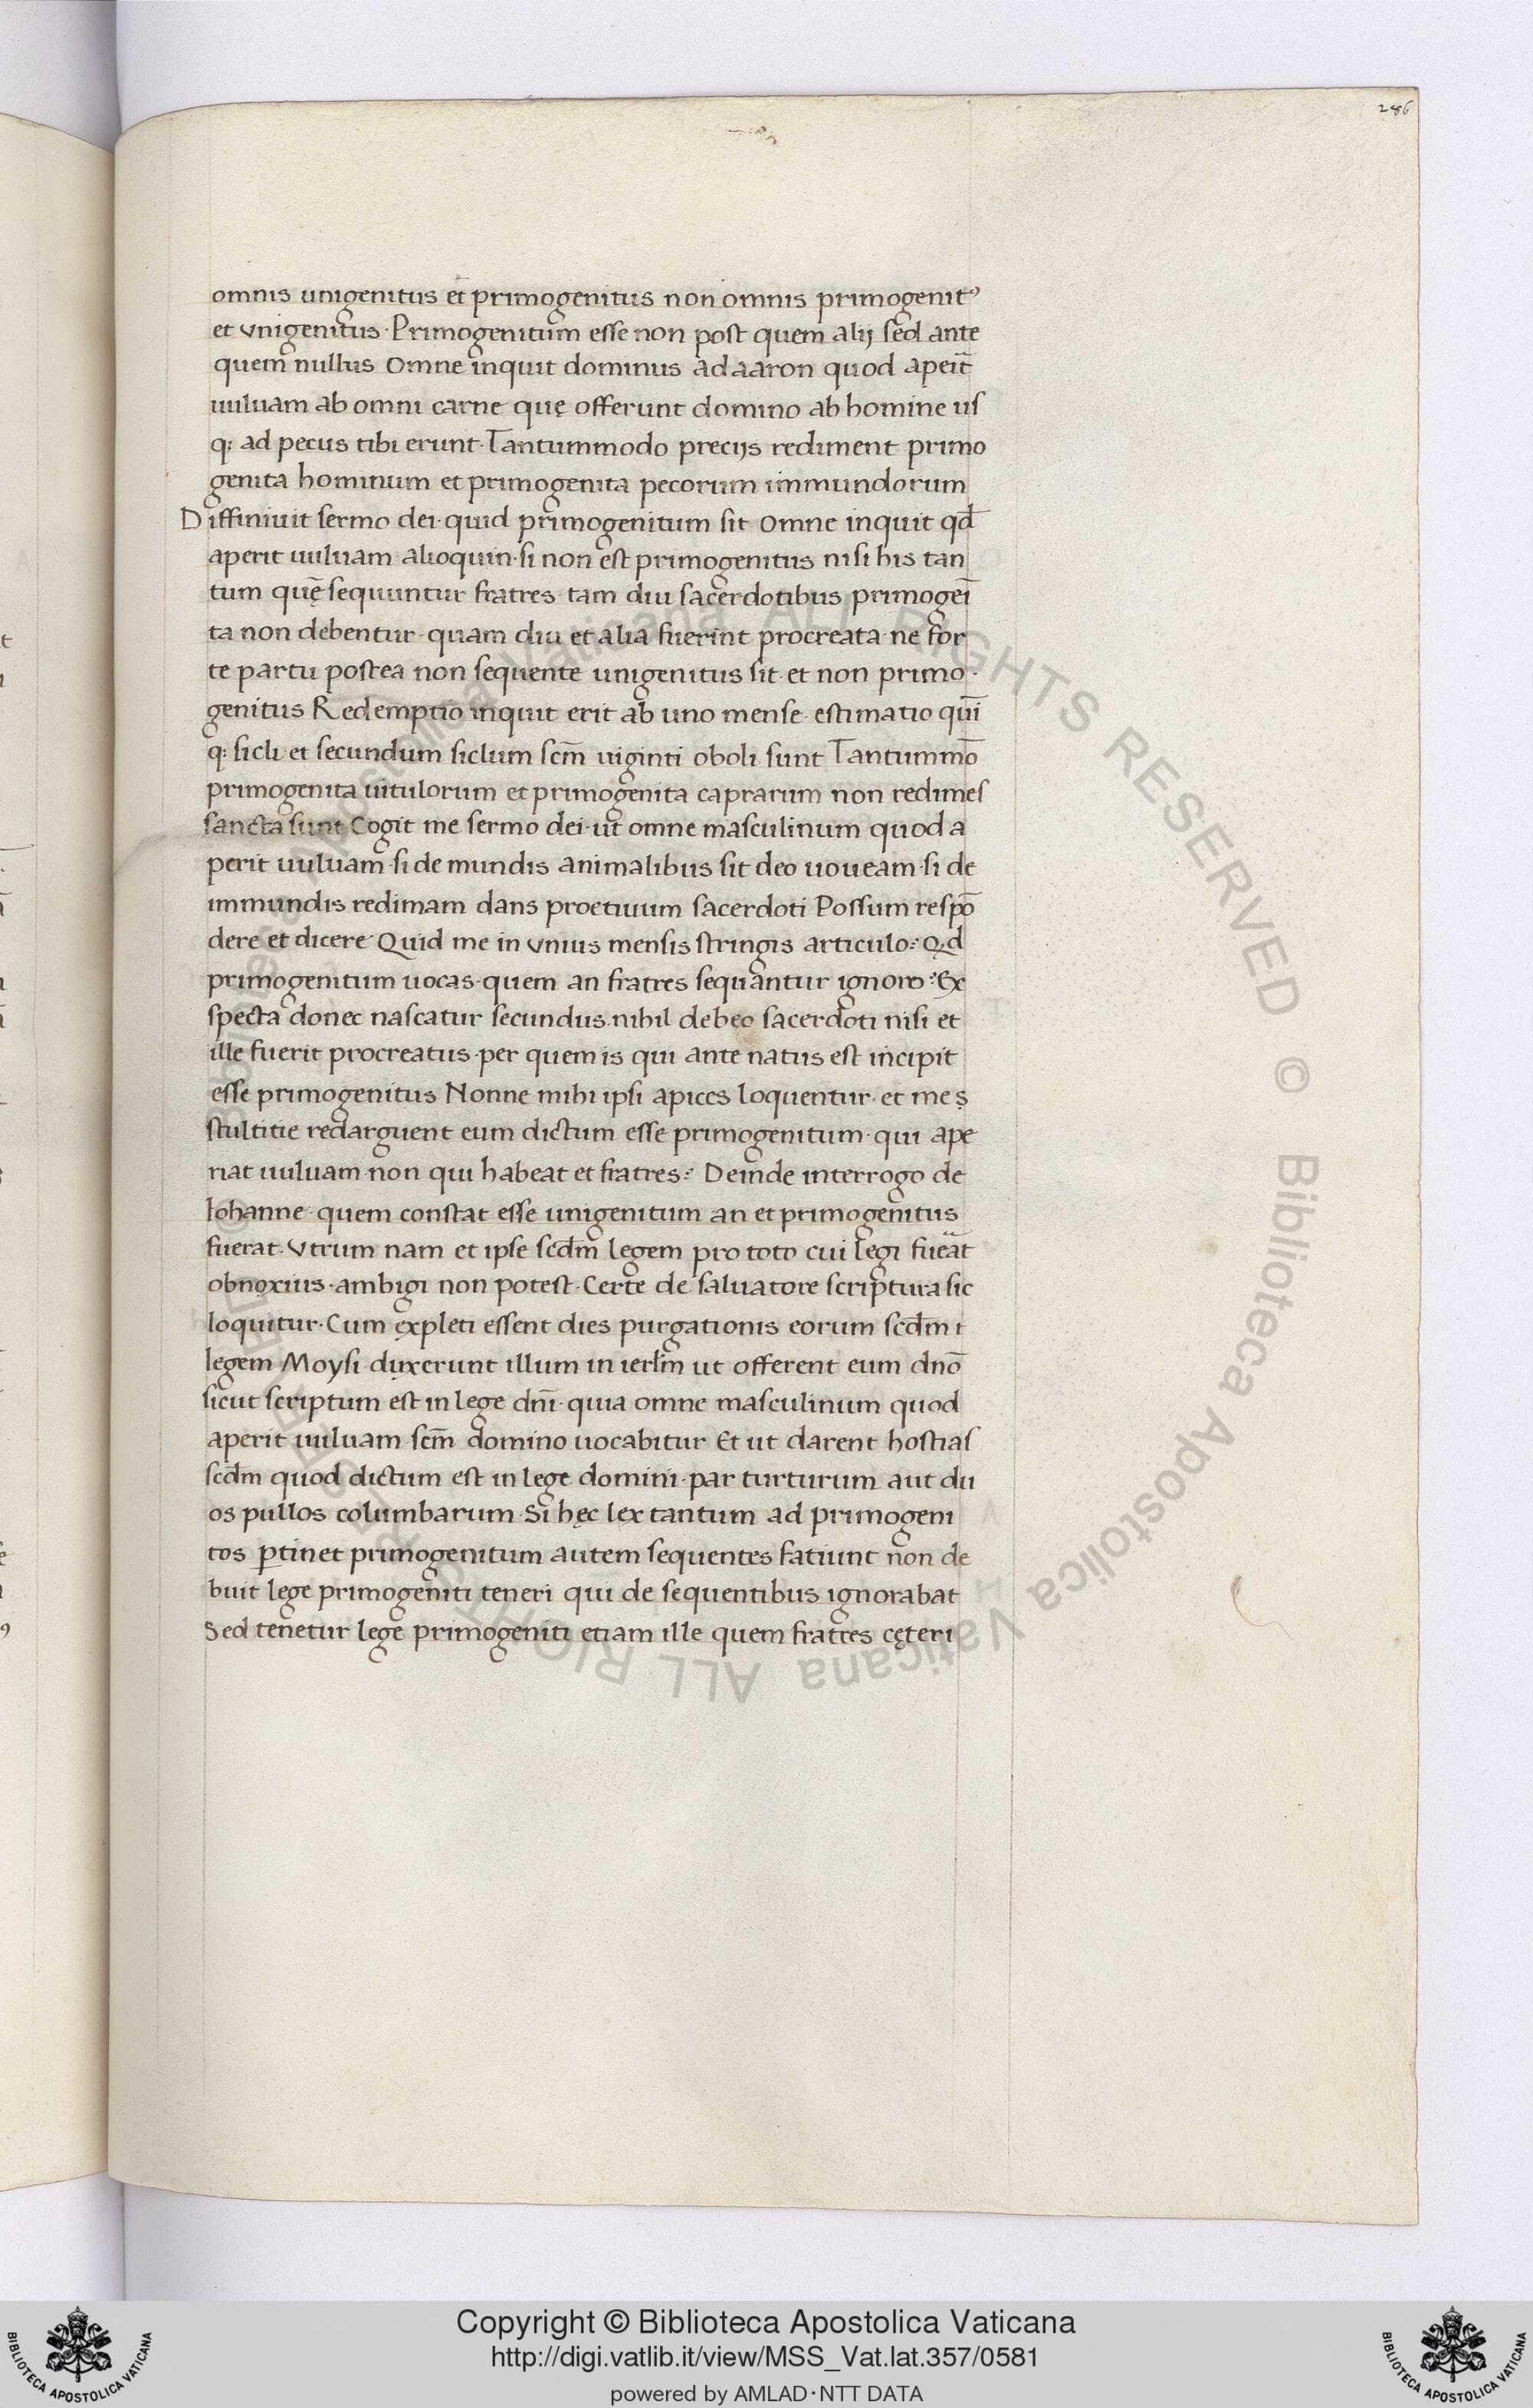 286
omnis unigenitus et primogenitus non omnis primogenitꝰ
et vnigenitus · Primogenitum esse non post quem alij sed ante
quem nullus Omne inquit dominus ad aaron quod apeit̃
uuluam ab omni carne quę offerunt domino ab homine us
q: ad pecus tibi erunt · Tantummodo precijs rediment primo
genita hominum et primogenita pecorum immundorum
Diffiniuit sermo dei · quid primogenitum sit Omne inquit qd̄
aperit uuluam alioquin · si non est primogenitus nisi his tan
tum quę sequuntur fratres · tam diu sacerdotibus primogeī
ta non debentur · quam diu et alia fuerint procreata · ne for
te partu postea non sequente unigenitus sit · et non primo ·
genitus Redemptio inquit erit ab uno mense · estimatio quī
q: sicli · et secundum siclum scm̄ uiginti oboli sunt Tantummō
primogenita uitulorum et primogenita caprarum non redimes
sancta sunt Cogit me sermo dei · ut omne masculinum quod a
perit uuluam · si de mundis animalibus sit deo uoueam · si de
immundis redimam dans proetiuum sacerdoti Possum respō
dere et dicere Quid me in vnius mensis stringis articulo :· Qd
primogenitum uocas · quem an fratres sequantur ignoro :· Ex
specta donec nascatur secundus · nihil debeo sacerdoti nisi et
ille fuerit procreatus · per quem is qui ante natus est incipit
esse primogenitus Nonne mihi ipsi apices loquentur · et me s
stultitie redarguent eum dictum esse primogenitum · qui ape
riat uuluam · non qui habeat et fratres :· Deinde interrogo de
Iohanne · quem constat esse unigenitum an et primogenitus
fuerat · Vtrum nam et ipse scd̄m legem pro toto cui legi fueāt
obnoxius · ambigi non potest · Certe de saluatore scriptura sic
loquitur · Cum expleti essent dies purgationis eorum scd̄m t
legem Moysi duxerunt illum in ierlm̄ ut offerent eum dnō
sicut scriptum est in lege dnī · quia omne masculinum quod
aperit uuluam scm̄ domino uocabitur Et ut darent hostias
scd̄m quod dictum est in lege domini · par turturum aut du
os pullos columbarum · Si hęc lex tantum ad primogeni
tos ꝑtinet primogenitum autem sequentes fatiunt non de
buit lege primogeniti teneri qui de sequentibus ignorabat
Sed tenetur lege primogeniti etiam ille quem fratres cęteri
© Biblioteca Apostolica Vaticana ALL RIGHTS RESERVED © Biblioteca Apostolica Vaticana ALL RIGHTS RESERVED
Copyright © Biblioteca Apostolica Vaticana
http://digi.vatlib.it/view/MSS_Vat.lat.357/0581
powered by AMLAD · NTT DATA
BIBLIOTECA APOSTOLICA VATICANA
BIBLIOTECA APOSTOLICA VATICANA